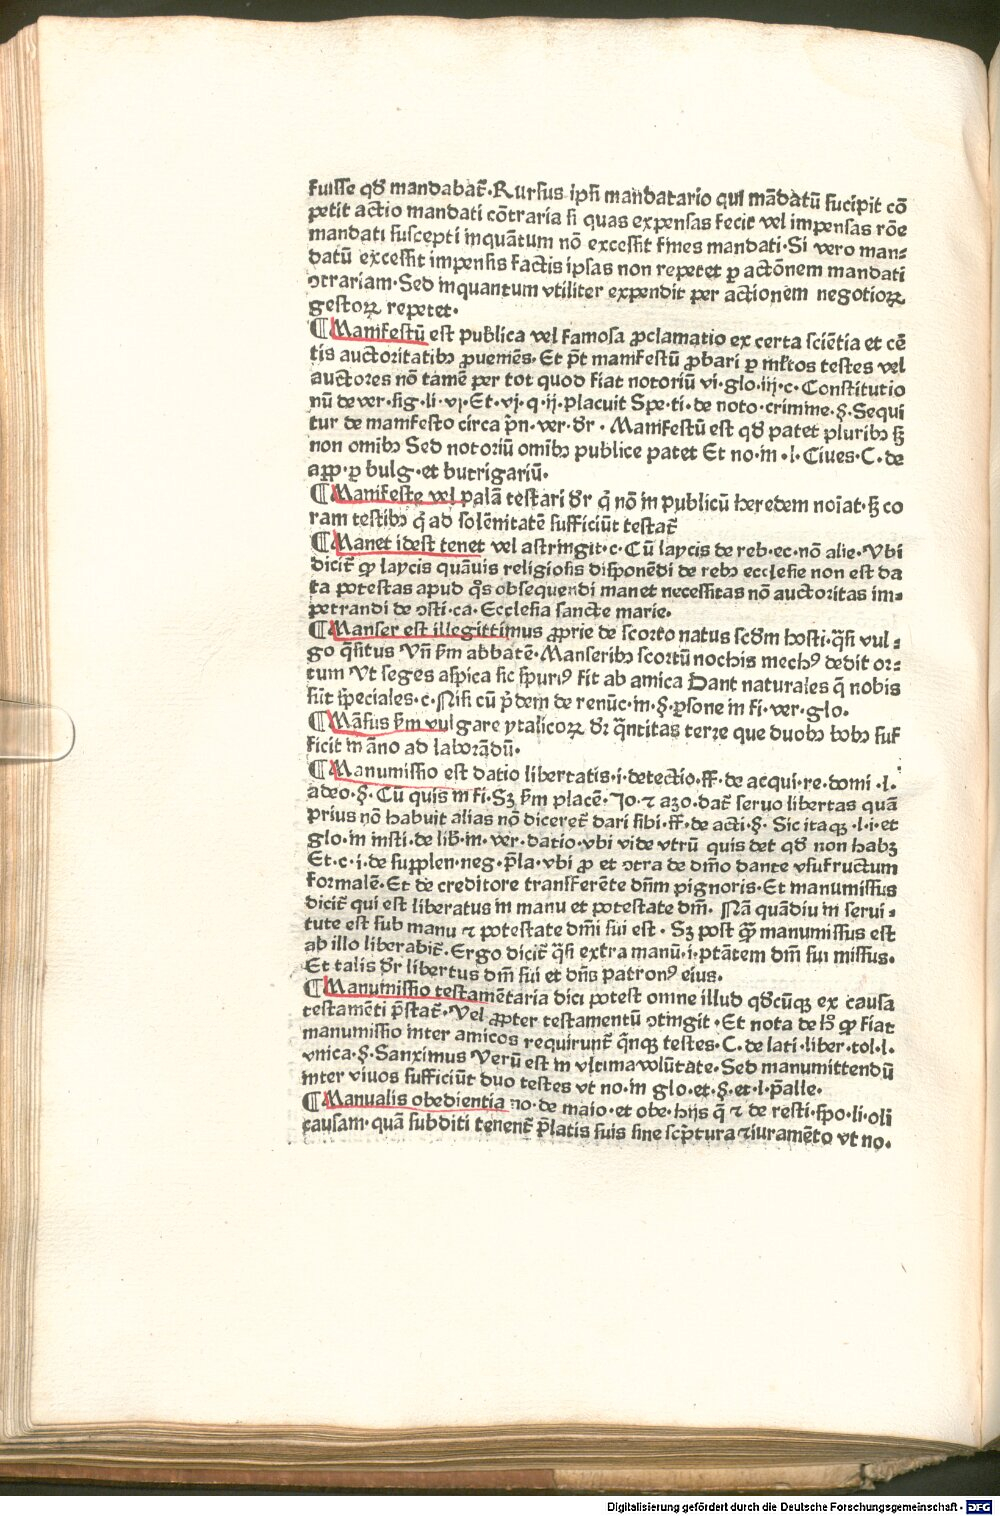 fuisse qď mandabat᷑. Rursus ipsi mandatario qui mādatū sucipit cō
petit actio mandati cōtraria si quas expensas fecit vel impensas rōe
mandati suscepti inquātum nō excessit fines mandati. Si vero man-
datū excessit impensis factis ipsas non repetet ꝑ actōnem mandati
ↄtrariam. Sed inquantum vtiliter expendit per actionem negotioꝝ
gestoꝝ repetet.
¶ Manifestū est publica vel famosa ꝓclamatio ex certa sciētia et cē
tis auctoritatibꝫ ꝓueniēs. Et p̄t manifestū ꝓbari ꝑ ml̄tos testes vel
auctores nō tamē per tot quod fiat notoriū vi. glo. iij. c. Constitutio
nū de ver. sig. li. vj. Et. vj. q. ij. placuit Spe. ti. de noto. crimine. §. Sequi
tur de manifesto circa p̄n. ver. dr̄. Manifestū est qď patet pluribꝫ sꝫ
non omībꝫ Sed notoriū omībꝫ publice patet Et no. in. l. Ciues. C. de
app. ꝑ bulg. et butrigariū.
¶ Manifeste vel palā testari dr̄ q̄ nō in publicū heredem noīat. sꝫ co
ram testibꝫ q̄ ad solēnitatē sufficiūt testat᷑
¶ Manet idest tenet vel astringit. c. Cū laycis de reb. ec. nō alie. Vbi
dicit᷑ ꝙ laycis quāuis religiosis disponēdi de rebꝫ ecclesie non est da
ta potestas apud q̄s obsequendi manet necessitas nō auctoritas im-
petrandi de ↄsti. ca. Ecclesia sancte marie.
¶ Manser est illegittimus ꝓprie de scorto natus scďm hosti. q̄si vul-
go q̄situs Vn̄ ẜm abbatē. Manseribꝫ scortū nochis mechꝰ dedit or-
tum Vt seges aspica sic spuriꝰ fit ab amica Dant naturales q̄ nobis
sūt speciales. c. Nisi cū p̄dem de renūc. in. §. ꝑsone in fi. ver. glo.
¶ Māsus ẜm vulgare ytalicoꝝ dr̄ q̄ntitas terre que duobꝫ bobꝫ suf
ficit in āno ad laborādū.
¶ Manumissio est datio libertatis. i. detectio. ff. de acqui. re. domi. l.
adeo. §. Cū quis in fi. Sꝫ ẜm placē. Jo. ⁊ azo. dat᷑ seruo libertas quā
prius nō habuit alias nō diceret᷑ dari sibi. ff. de acti. §. Sic itaqꝫ. l. i. et
glo. in insti. de lib. in. ver. datio. vbi vide vtrū quis det qď non habꝫ
Et. c. i. de supplen. neg. p̄la. vbi ꝓ et ↄtra de dn̄o dante vsufructum
formalē. Et de creditore transferēte dn̄m pignoris. Et manumissus
dicit᷑ qui est liberatus in manu et potestate dn̄i. Nā quādiu in serui-
tute est sub manu ⁊ potestate dn̄i sui est. Sꝫ post ꝙ̄ manumissus est
ab illo liberabit᷑. Ergo dicit᷑ q̄si extra manū. i. ptātem dn̄i sui missus.
Et talis dr̄ libertus dn̄i sui et dn̄s patronꝰ eius.
¶ Manumissio testamētaria dici potest omne illud qďcūqꝫ ex causa
testamēti p̄stat᷑. Vel ꝓpter testamentū ↄtingit. Et nota de hͦ ꝙ fiat
manumissio inter amicos requirunt᷑ q̄nqꝫ testes. C. de lati. liber. tol. l.
vnica. §. Sanximus Verū est in vltima volūtate. Sed manumittendū
inter viuos sufficiūt duo testes vt no. in glo. et. §. et. l. p̄alle.
¶ Manualis obedientia no. de maio. et obe. hijs q̄ ⁊ de resti. spo. li. oli
causam. quā subditi tenent᷑ p̄latis suis sine scp̄tura ⁊ iuramēto vt no.
Digitalisierung gefördert durch die Deutsche Forschungsgemeinschaft - DFG